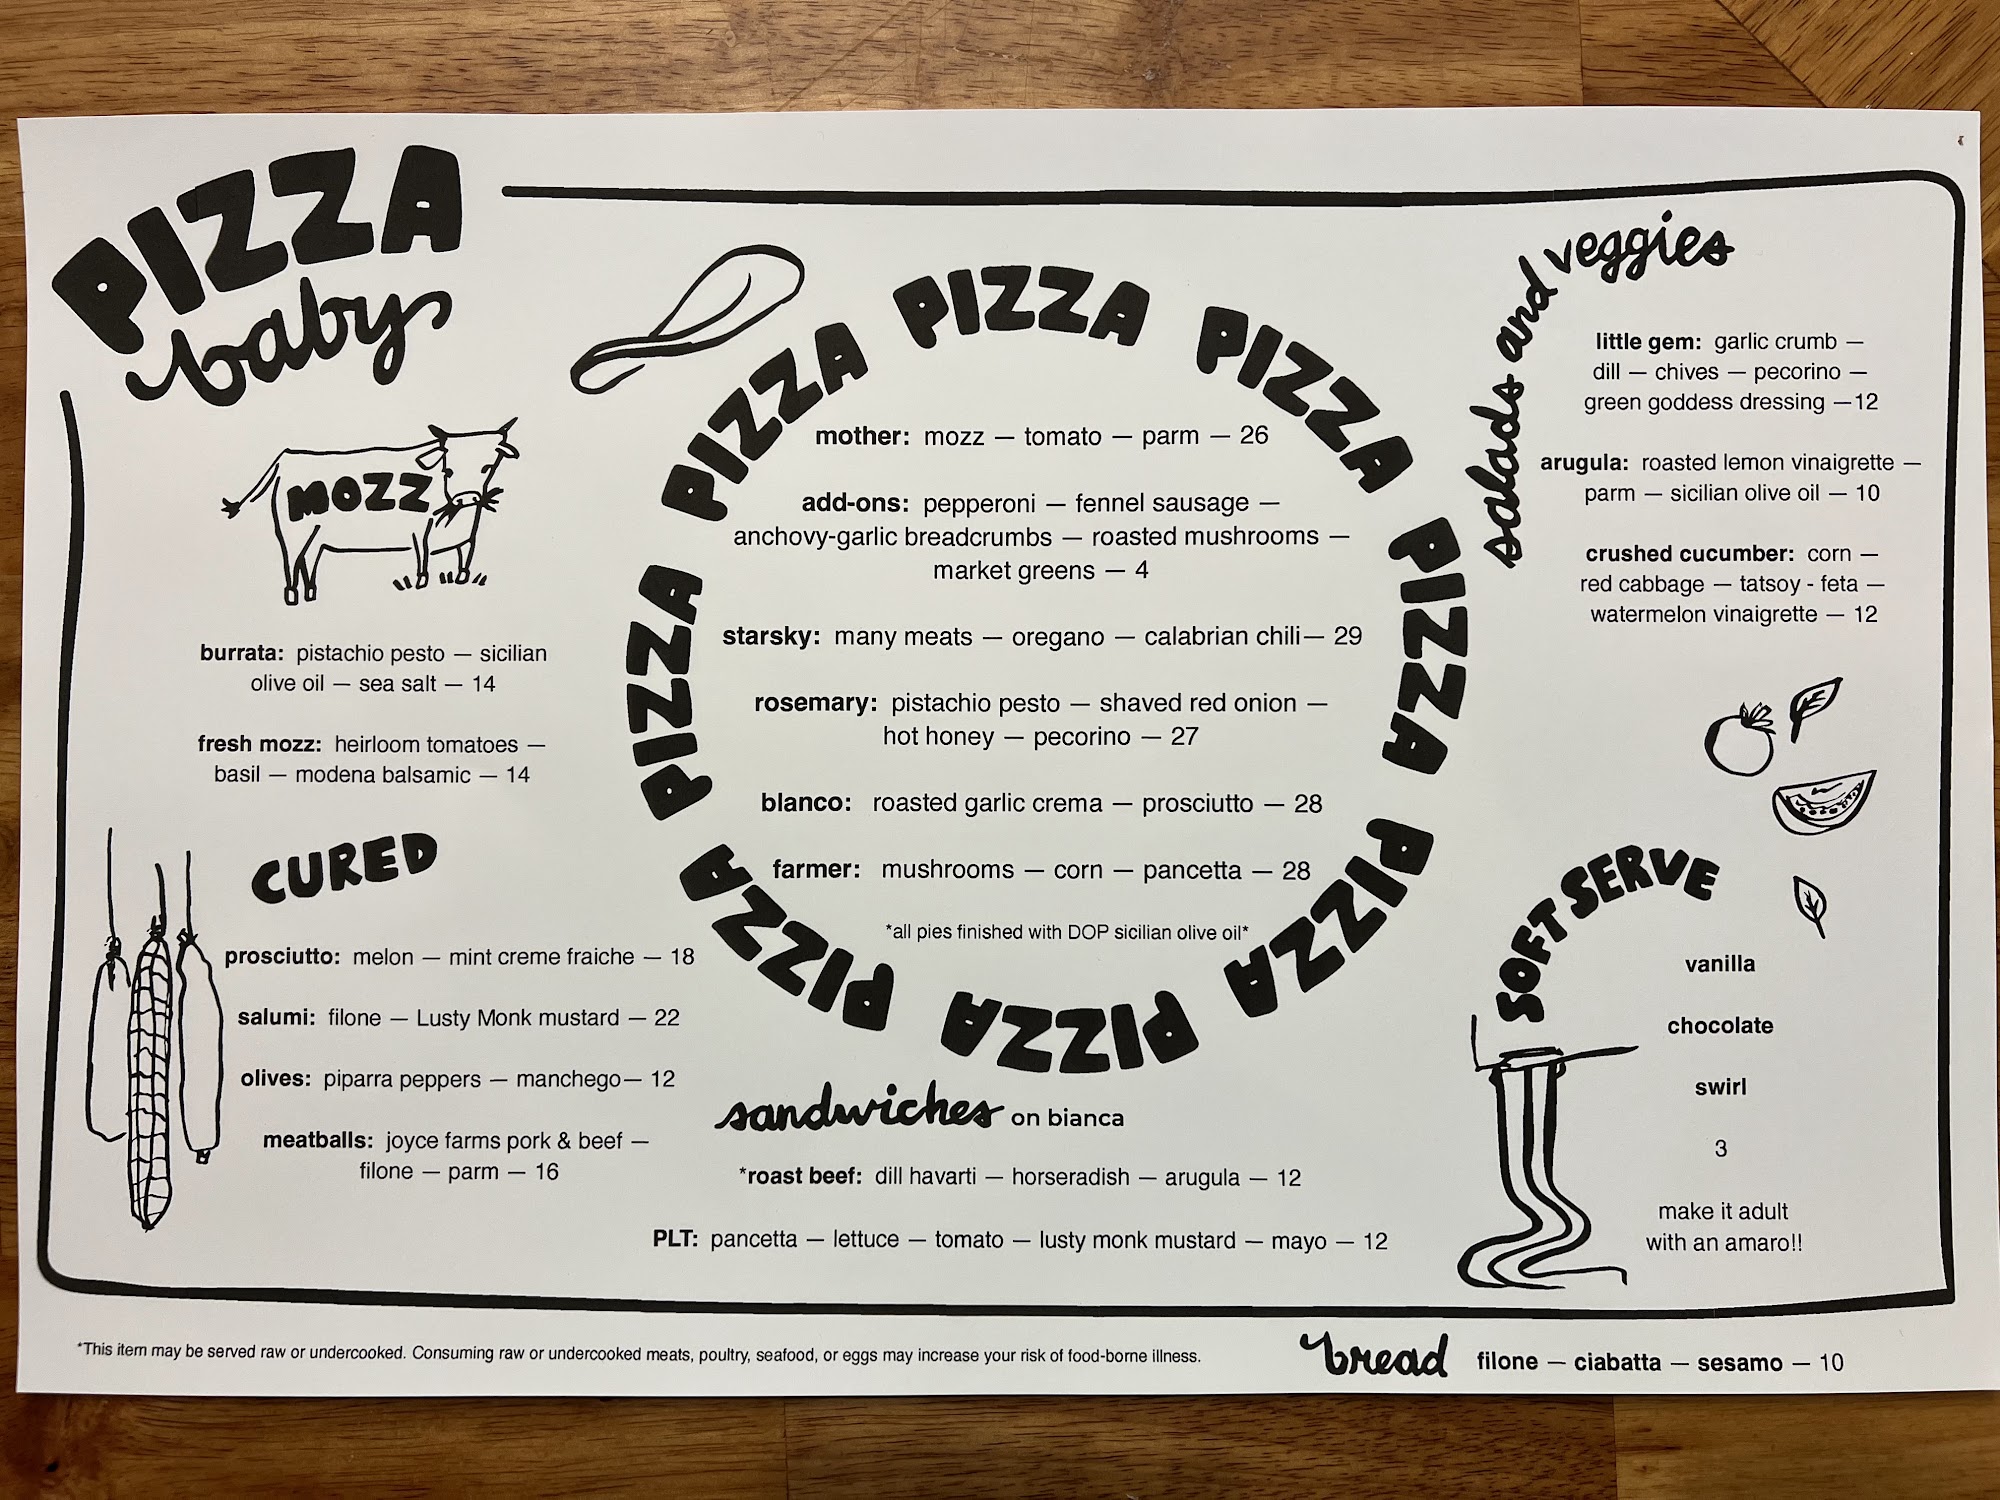 PIZZA
baby
MOZZ
burrata: pistachio pesto — sicilian
olive oil — sea salt — 14
fresh mozz: heirloom tomatoes —
basil — modena balsamic — 14
CURED
prosciutto: melon — mint creme fraiche — 18
salumi: filone — Lusty Monk mustard — 22
olives: piparra peppers — manchego— 12
meatballs: joyce farms pork & beef —
filone — parm — 16
PIZZA PIZZA PIZZA PIZZA PIZZA PIZZA PIZZA PIZZA PIZZA
mother: mozz — tomato — parm — 26
add-ons: pepperoni — fennel sausage —
anchovy-garlic breadcrumbs — roasted mushrooms —
market greens — 4
starsky: many meats — oregano — calabrian chili— 29
rosemary: pistachio pesto — shaved red onion —
hot honey — pecorino — 27
blanco: roasted garlic crema — prosciutto — 28
farmer: mushrooms — corn — pancetta — 28
*all pies finished with DOP sicilian olive oil*
sandwiches on bianca
*roast beef: dill havarti — horseradish — arugula — 12
PLT: pancetta — lettuce — tomato — lusty monk mustard — mayo — 12
salads and veggies
little gem: garlic crumb —
dill — chives — pecorino —
green goddess dressing —12
arugula: roasted lemon vinaigrette —
parm — sicilian olive oil — 10
crushed cucumber: corn —
red cabbage — tatsoy - feta —
watermelon vinaigrette — 12
SOFT SERVE
vanilla
chocolate
swirl
3
make it adult
with an amaro!!
*This item may be served raw or undercooked. Consuming raw or undercooked meats, poultry, seafood, or eggs may increase your risk of food-borne illness.
bread filone — ciabatta — sesamo — 10